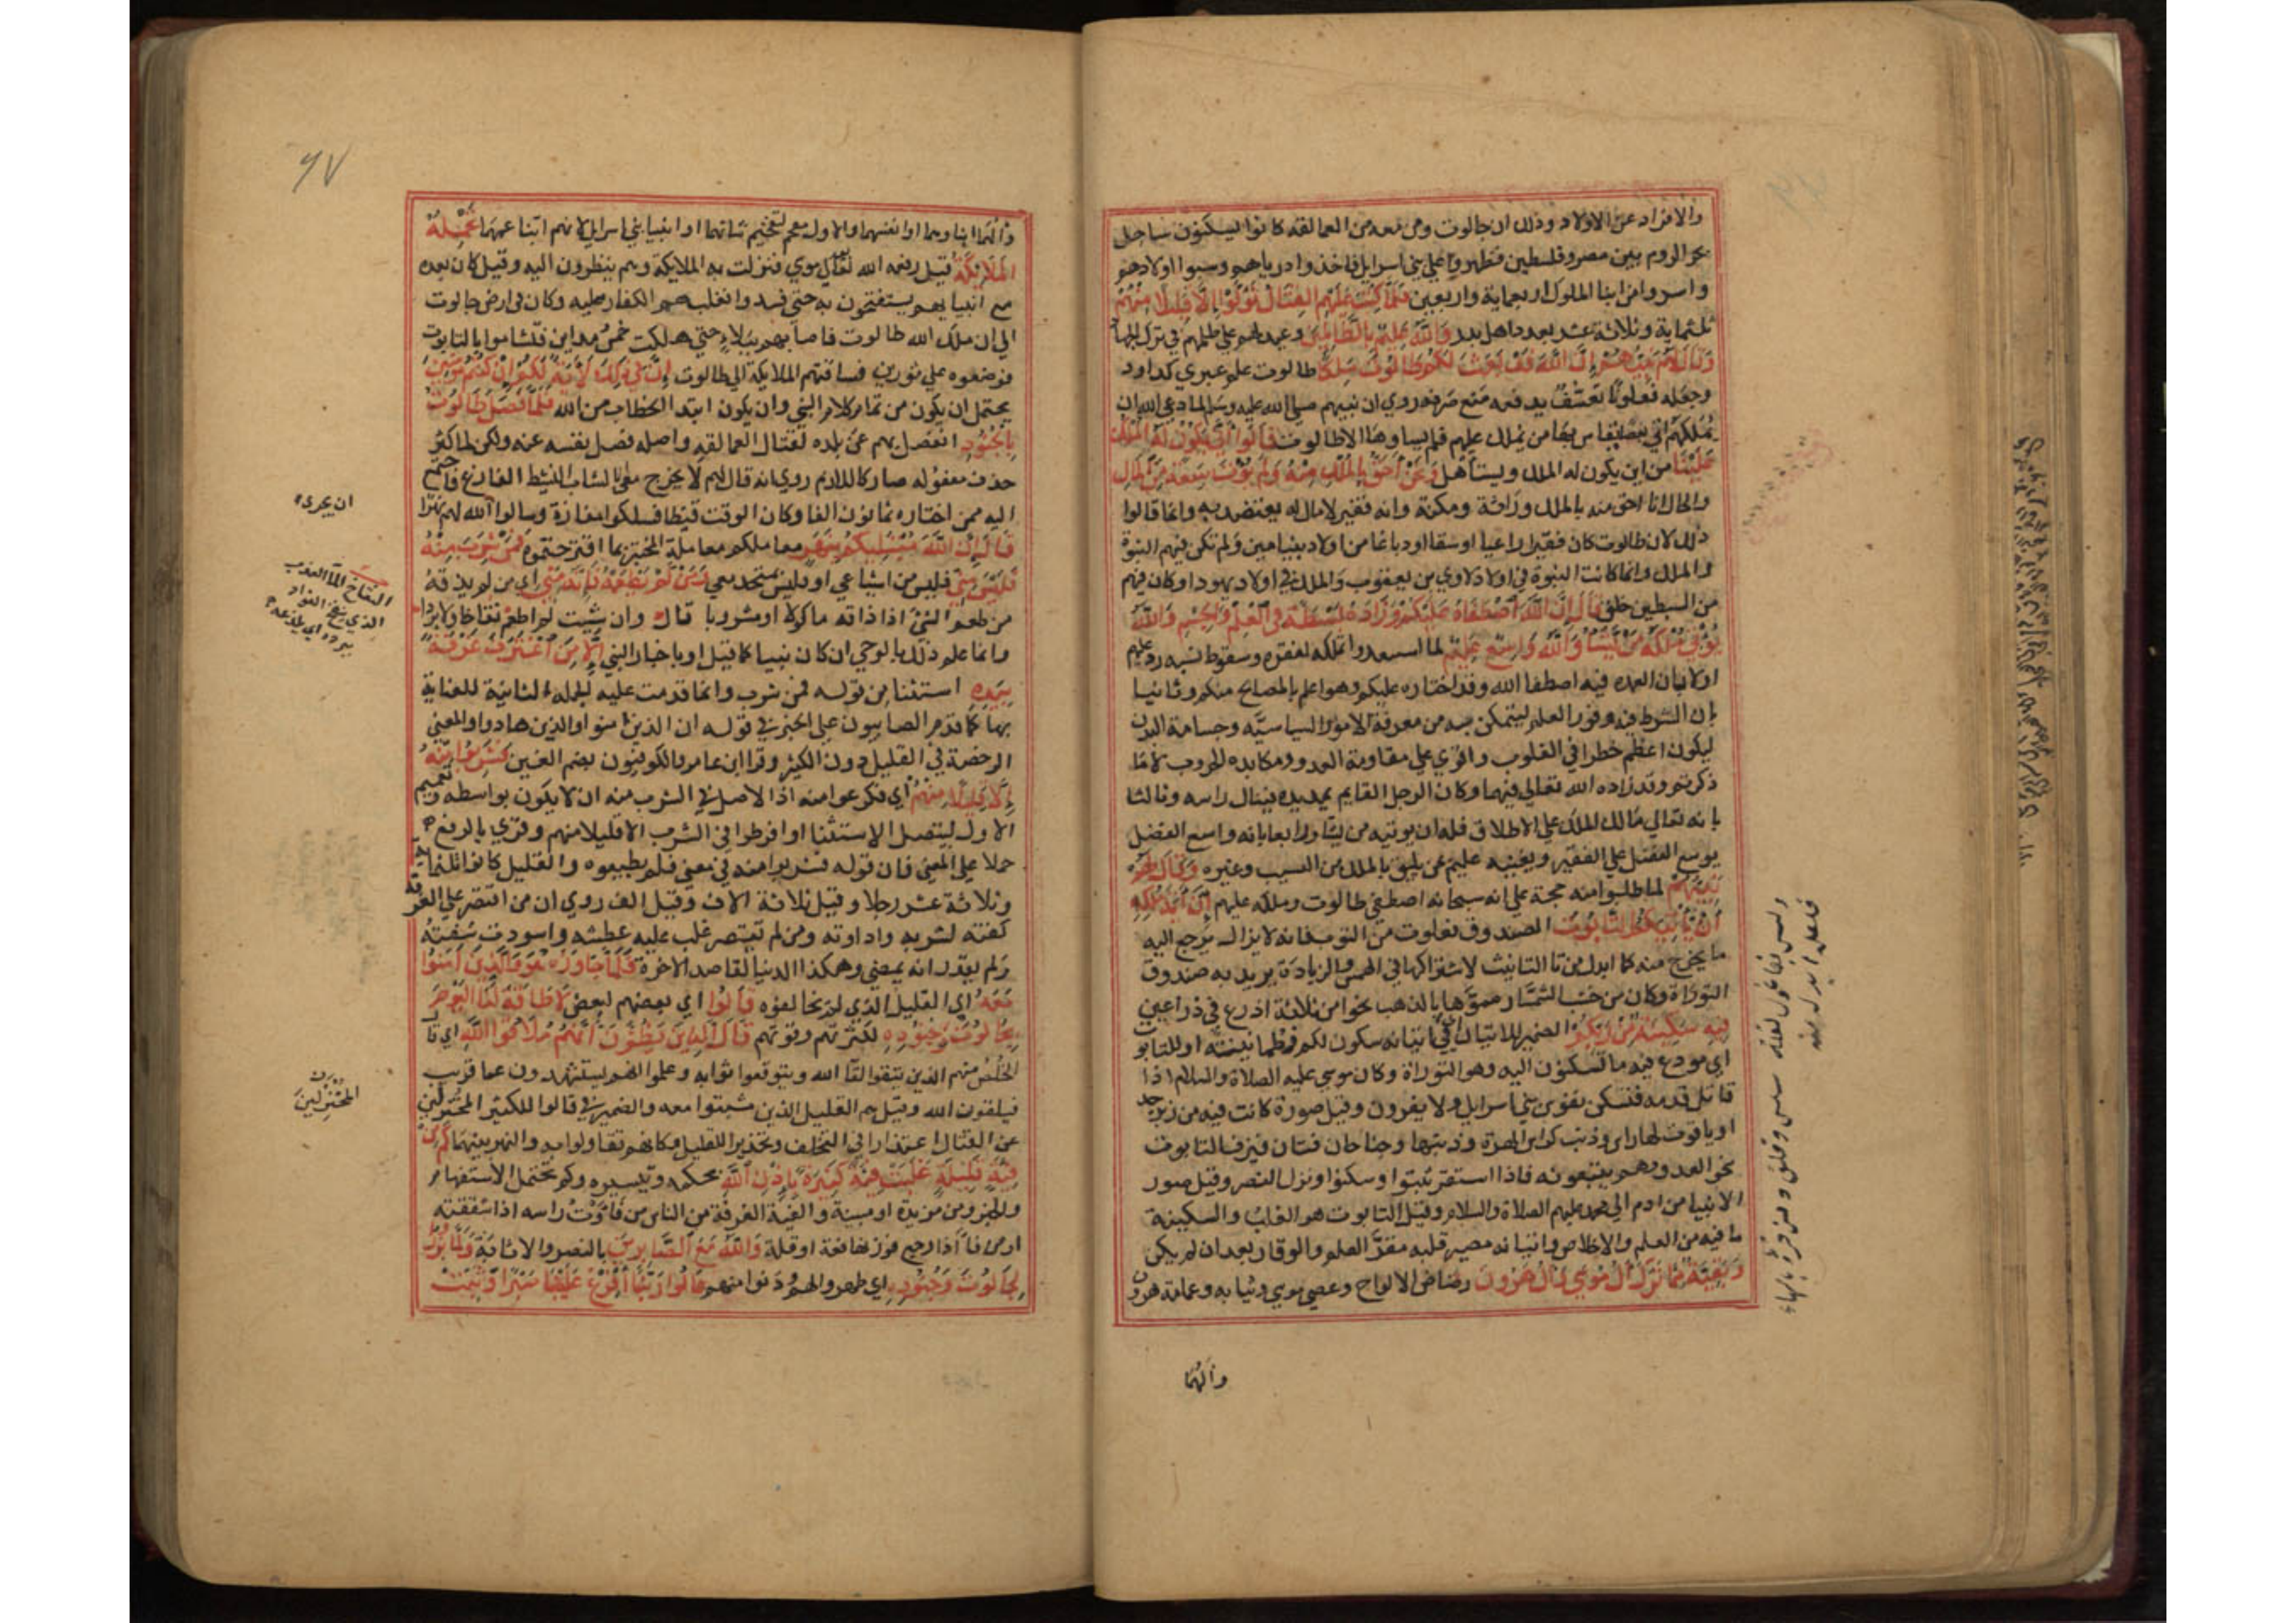 والافراد عن الاولاد وذلك ان جالوت ومن معه من العمالقه كانوا يسكنون ساحل
بحر الروم بين مصر وفلسطين فظهروا علي بني اسرايل فاخذوا ديارهم وسبوا اولادهم
واسروا من ابنا الملوك اربعماية واربعين فَلَمَّا كُتِبَ عَلَيْهِمُ القِتَالُ تَوَلَّوْا إِلَّا قَلِيلًا مِنْهُمْ
ثلثماية وثلاثة عشر بعدد اهل بدر وَاللَّهُ عَلِيمٌ بِالظَّالِمِينَ وعيد لهم علي ظلمهم في ترك الجهاد
وَقَالَ لَهُمْ نَبِيُّهُمْ إِنَّ اللَّهَ قَدْ بَعَثَ لَكُمْ طَالُوتَ مَلِكًا طالوت علم عبري كداود
وجعله فعلوتا تعسف يدفعه منع صرفه روي ان نبيهم صلي الله عليه وسلم لما دعي الله ان
يملكهم اتي بعصا يقاس بها من يملك عليهم فلم يساوها الا طالوت قَالُوا أَنَّى يَكُونُ لَهُ الْمُلْكُ
عَلَيْنَا من اين يكون له الملك ويستاهل وَنَحْنُ أَحَقُّ بِالْمُلْكِ مِنْهُ وَلَمْ يُؤْتَ سَعَةً مِنَ الْمَالِ
والحال انا احق منه بالملك وراثة ومكنة وانه فقير لا مال له يعتضد به وانما قالوا
ذلك لان طالوت كان فقيرا راعيا او سقا او دباغا من اولاد بنيامين ولم تكن فيهم النبوة
والملك وانما كانت النبوة في اولاد لاوي بن يعقوب والملك في اولاد يهودا وكان فيهم
من السبطين خلق قَالَ إِنَّ اللَّهَ اصْطَفَاهُ عَلَيْكُمْ وَزَادَهُ بَسْطَةً فِي الْعِلْمِ وَالْجِسْمِ وَاللَّهُ
يُؤْتِي مُلْكَهُ مَنْ يَشَا وَاللَّهُ وَاسِعٌ عَلِيمٌ لما استبعدوا تملكه لفقره وسقوط نسبه رد عليهم
اولا بان العمده فيه اصطفا الله وقد اختاره عليكم وهو اعلم بالمصالح منكم وثانيا
بان الشرط فيه وفور العلم ليتمكن به من معرفة الامور السياسيه وجسامة البدن
ليكون اعظم خطرا في القلوب واقوي علي مقاومة العدو ومكابده الحروب لا ما
ذكرتم وقد زاده الله تعالي فيهما وكان الرجل القايم يمد يده فينال راسه وثالثا
بانه تعالي مالك الملك علي الاطلاق فله ان يوتيه من يشا ورابعا بانه واسع الفضل
يوسع الفضل علي الفقير ويغنيه عليم بمن يليق بالملك من النسيب وغيره وَقَالَ لَهُمْ
نَبِيُّهُمْ لما طلبوا منه حجة علي انه سبحانه اصطفي طالوت وملكه عليهم إِنَّ آيَةَ مُلْكِهِ
أَنْ يَأْتِيَكُمُ التَّابُوتُ الصندوق فعلوت من التوب فانه لا يزال يرجع اليه
ما يخرج منه كما ابدل من تا التانيث لاشتراكهما في الهمس والزيادة يريد به صندوق
التوراة وكان من خشب الشمشار مموها بالذهب نحوا من ثلاثة اذرع في ذراعين
فِيهِ سَكِينَةٌ مِنْ رَبِّكُمْ الضمير للاتيان اي في اتيانه سكون لكم وطمانينة او للتابوت
اي مودع فيه ما تسكنون اليه وهو التوراة وكان موسي عليه الصلاة والسلام اذا
قاتل قدمه فتسكن نفوس بني اسرايل ولا يفرون وقيل صورة كانت فيه من زبرجد
او ياقوت لها راس وذنب كراس الهرة وذنبها وجناحان فتان فيزف التابوت
نحو العدو وهم يتبعونه فاذا استقر ثبتوا وسكنوا ونزل النصر وقيل صور
الانبيا من ادم الي محمد عليهم الصلاة والسلام وقيل التابوت هو القلب والسكينة
ما فيه من العلم والاخلاص واتيانه مصير قلبه مقر العلم والوقار بعد ان لم يكن
وَبَقِيَّةٌ مِمَّا تَرَكَ آلُ مُوسَى وَآلُ هَارُونَ رضاض الالواح وعصي موسي وثيابه وعمامة هرون
والهما
وليس بفاعول لقلة سلس وقلق ومن قرأه بالهاء
فلعله ابدله منه
٦٧
وآلهما ابناوهما او انفسهما والاول مقحم لتفخيم شانهما او انبيا بني اسرايل لانهم ابنا عمهما تَحْمِلُهُ
الْمَلَائِكَةُ قيل رفعه الله تعالي بعد موسي فنزلت به الملايكة وهم ينظرون اليه وقيل كان بعده
مع انبيايهم يستفتحون به حتي فسدوا فغلبهم الكفار عليه وكان في ارض جالوت
الي ان ملك الله طالوت فاصابهم ببلاء حتي هلكت خمس مداين فتشاموا بالتابوت
فوضعوه علي ثورين فساقتهم الملايكة الي طالوت إِنَّ فِي ذَلِكَ لَآيَةً لَكُمْ إِنْ كُنْتُمْ مُؤْمِنِينَ
يحتمل ان يكون من تمام كلام النبي وان يكون ابتدا الخطاب من الله فَلَمَّا فَصَلَ طَالُوتُ
بِالْجُنُودِ انفصل بهم عن بلده لقتال العمالقه واصله فصل نفسه عنه ولكن لما كثر
حذف مفعوله صار كاللازم روي انه قال لهم لا يخرج معي الا الشاب النشيط الفارغ فاجتمع
اليه ممن اختاره ثمانون الفا وكان الوقت قيظا فسلكوا مفازة وسالوا الله لهم نهرا
قَالَ إِنَّ اللَّهَ مُبْتَلِيكُمْ بِنَهَرٍ معاملكم معاملة المختبر بما اقترحتموه فَمَنْ شَرِبَ مِنْهُ
فَلَيْسَ مِنِّي فليس من اشياعي او فليس بمتحد معي وَمَنْ لَمْ يَطْعَمْهُ فَإِنَّهُ مِنِّي اي من لم يذقه
من طعم الشي اذا ذاقه ماكولا او مشروبا قال وان شيت لم اطعم نقاخا ولا بردا
وانما علم ذلك بالوحي ان كان نبيا كما قيل او باخبار النبي إِلَّا مَنِ اغْتَرَفَ غُرْفَةً
بِيَدِهِ استثنا من قوله فمن شرب وانما قدمت عليه الجمله الثانية للعناية
بها كما قدم الصابيون علي الخبر في قوله ان الذين امنوا والذين هادوا والمعني
الرخصة في القليل دون الكثير وقرا ابن عامر والكوفيون بضم الغين فَشَرِبُوا مِنْهُ
إِلَّا قَلِيلًا مِنْهُمْ اي فكرعوا منه اذ الاصل في الشرب منه ان لا يكون بواسطه وتعميم
الاول ليتصل الاستثنا او افرطوا في الشرب الا قليلا منهم وقري بالرفع
حملا علي المعني فان قوله فشربوا منه في معني فلم يطيعوه والقليل كانوا ثلثماية
وثلاثة عشر رجلا وقيل ثلاثة الاف وقيل الف روي ان من اقتصر علي الغرفة
كفته لشربه واداوته ومن لم يقتصر غلب عليه عطشه واسودت شفته
ولم يقدر ان يمضي وهكذا الدنيا لقاصد الاخرة فَلَمَّا جَاوَزَهُ هُوَ وَالَّذِينَ آمَنُوا
مَعَهُ اي القليل الذي لم يخالفوه قَالُوا اي بعضهم لبعض لَا طَاقَةَ لَنَا الْيَوْمَ
بِجَالُوتَ وَجُنُودِهِ لكثرتهم وقوتهم قَالَ الَّذِينَ يَظُنُّونَ أَنَّهُمْ مُلَاقُوا اللَّهِ اي قال
الخلص منهم الذين تيقنوا لقا الله وتوقعوا ثوابه وعلموا انهم يستشهدون عما قريب
فيلقون الله وقيل هم القليل الذين ثبتوا معه والضمير في قالوا للكثير المنخزلين
عن القتال اعتذارا في التخلف وتخذيرا للقليل وكانهم تقاولوا به والنهر بينهما كَمْ مِنْ
فِئَةٍ قَلِيلَةٍ غَلَبَتْ فِئَةً كَثِيرَةً بِإِذْنِ اللَّهِ بحكمه وتيسيره وكم تحتمل الاستفهام
والخبر ومن مزيدة او مبينة والفية الفرقة من الناس من فأوت راسه اذا شققته
او من فاء اذا رجع فوزنها فعة او فلة وَاللَّهُ مَعَ الصَّابِرِينَ بالنصر والاثابة وَلَمَّا بَرَزُوا
لِجَالُوتَ وَجُنُودِهِ اي ظهروا لهم ودنوا منهم قَالُوا رَبَّنَا أَفْرِغْ عَلَيْنَا صَبْرًا وَثَبِّتْ
ان يجري
النقاخ الماء العذب
الذي ينقخ الفواد
ببرده اي يلذعه
المنخزلين